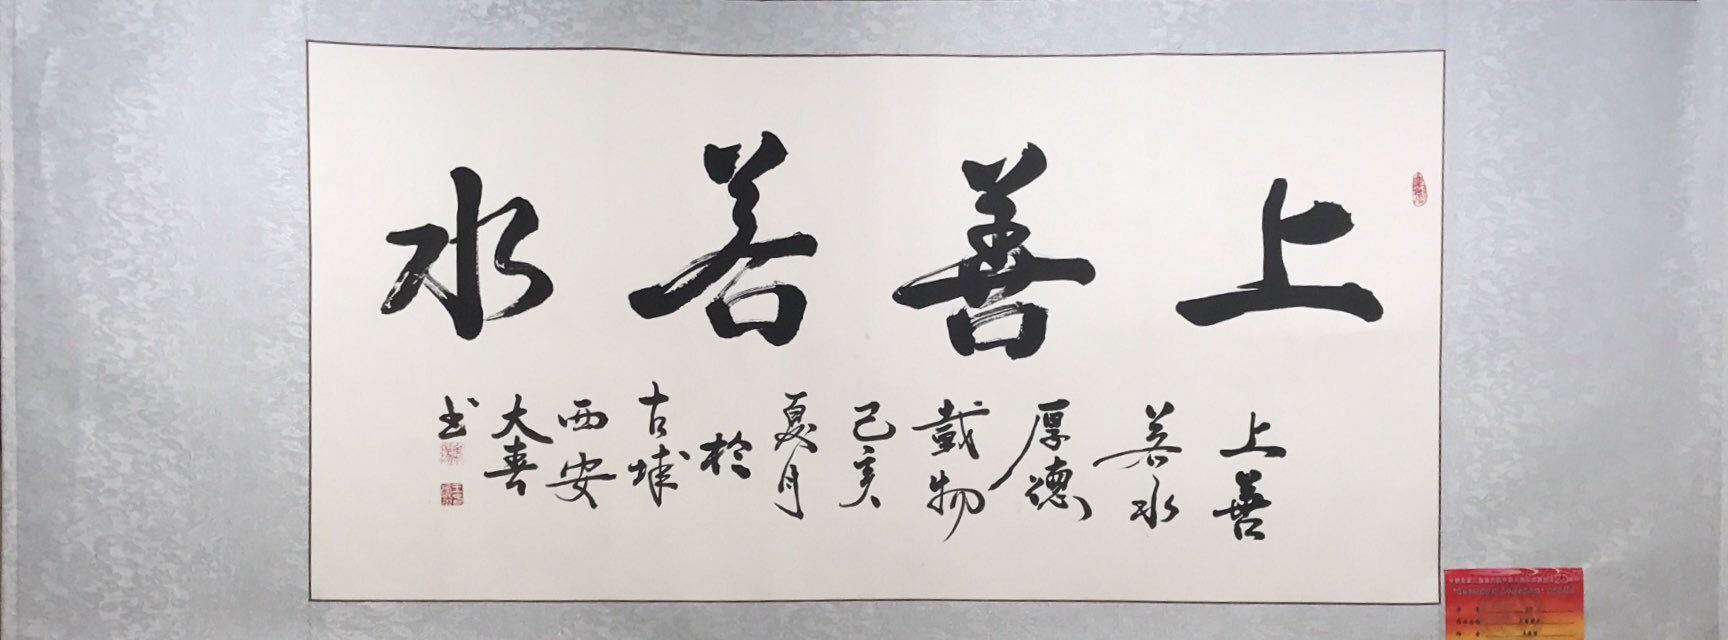 上善若水
上善
若水
厚德
載物
己亥
夏月
於
古城
西安
大春
书